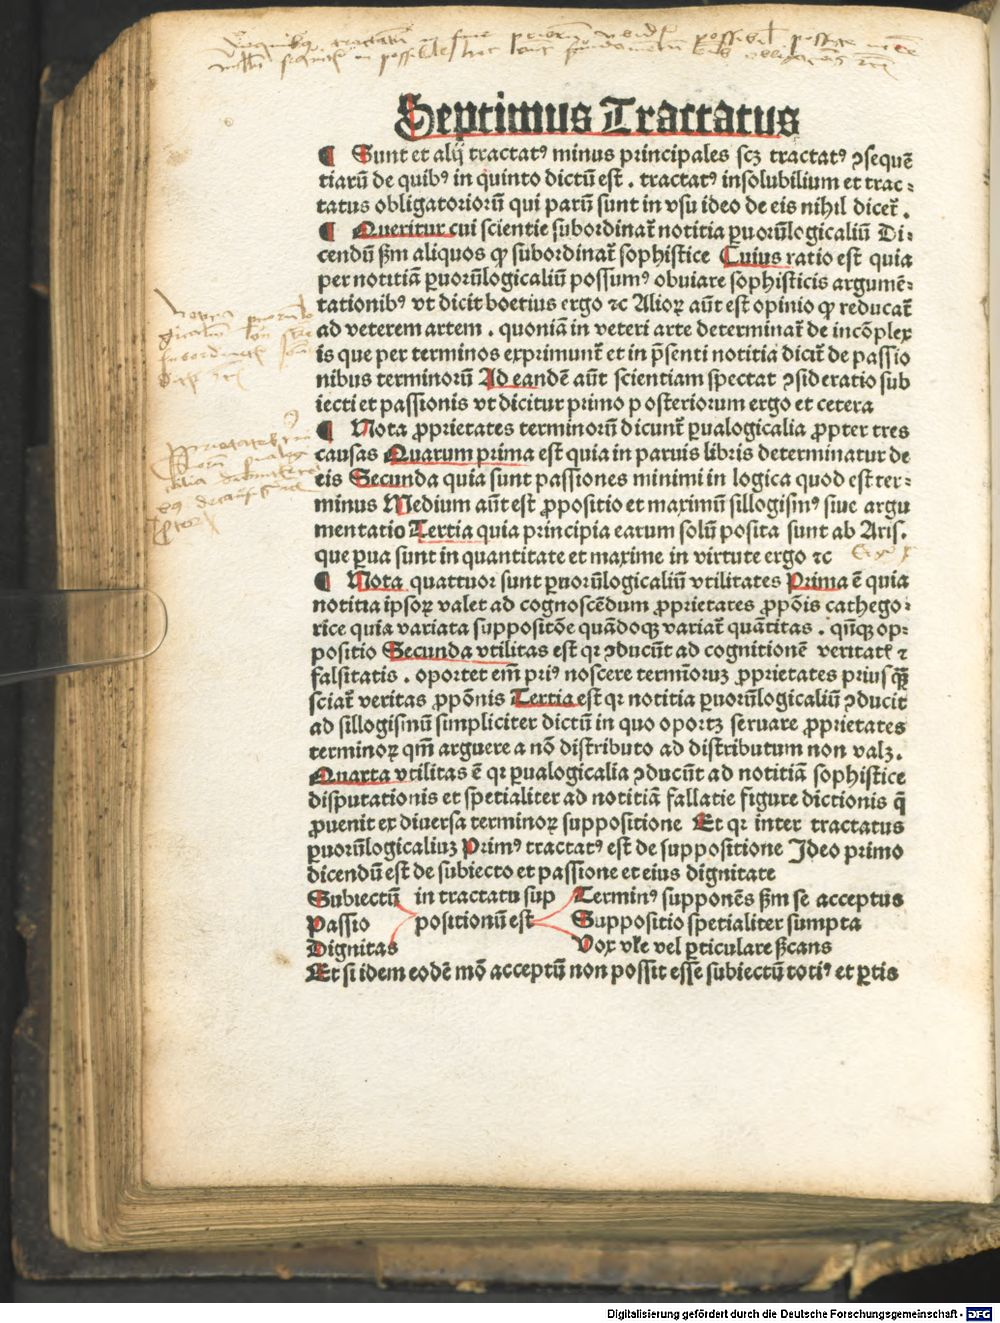 Septimus Tractatus
¶ Sunt et alij tractatꝰ minus principales scꝫ tractatꝰ ↄsequē
tiarū de quibꝰ in quinto dictū est . tractatꝰ insolubilium et trac⸗
tatus obligatoriorū qui parū sunt in vsu ideo de eis nihil dicet̄ .
¶ Queritur cui scientie subordinat̄ notitia ꝑuorūlogicaliū Di⸗
cendū ẜm aliquos ꝙ subordinat̄ sophistice Cuius ratio est quia
per notitiā ꝑuorūlogicaliū possumꝰ obuiare sophisticis argumē⸗
tationibꝰ vt dicit boetius ergo ⁊c Alioꝝ aūt est opinio ꝙ reducat̄
ad veterem artem . quoniā in veteri arte determinat̄ de incōplex
is que per terminos exprimunt̄ et in p̄senti notitia dicit̄ de passio
nibus terminorū Ad eandē aūt scientiam spectat ↄsideratio sub
iecti et passionis vt dicitur primo posteriorum ergo et cetera
¶ Nota ꝓprietates terminorū dicunt̄ ꝑualogicalia ꝓpter tres
causas Quarum prima est quia in paruis libris determinatur de
eis Secunda quia sunt passiones minimi in logica quod est ter⸗
minus Medium aūt est ꝓpositio et maximū sillogismꝰ siue argu
mentatio Tertia quia principia earum solū posita sunt ab Aris.
que ꝑua sunt in quantitate et maxime in virtute ergo ⁊c
¶ Nota quattuor sunt ꝑuorūlogicaliū vtilitates Prima ē quia
notitia ipsoꝝ valet ad cognoscēdum ꝓprietates ꝓpōis cathego⸗
rice quia variata suppositōe quādoqꝫ variat̄ quātitas . qn̄qꝫ op⸗
positio Secunda vtilitas est qꝛ ↄducūt ad cognitionē veritatꝭ ⁊
falsitatis . oportet em̄ priꝰ noscere termioruꝫ ꝓprietates priusqꝫ̄
sciat̄ veritas ꝓpōnis Tertia est qꝛ notitia ꝑuorūlogicaliū ↄducit
ad sillogismū simpliciter dictū in quo oportꝫ seruare ꝓprietates
terminoꝝ qm̄ arguere a nō distributo ad distributum non valꝫ .
Quarta vtilitas ē qꝛ ꝑualogicalia ↄducūt ad notitiā sophistice
disputationis et spetialiter ad notitiā fallatie figure dictionis q̄
ꝓuenit ex diuersa terminoꝝ suppositione Et qꝛ inter tractatus
ꝑuorūlogicaliuꝫ Primꝰ tractatꝰ est de suppositione Ideo primo
dicendū est de subiecto et passione et eius dignitate
Subiectū in tractatu sup Terminꝰ supponēs ẜm se acceptus
Passio positionū est Suppositio spetialiter sumpta
Dignitas Vox vłe vel ꝑticulare ẜcans
Et si idem eodē mō acceptū non possit esse subiectū totiꝰ et ꝑtis
Digitalisierung gefördert durch die Deutsche Forschungsgemeinschaft - DFG